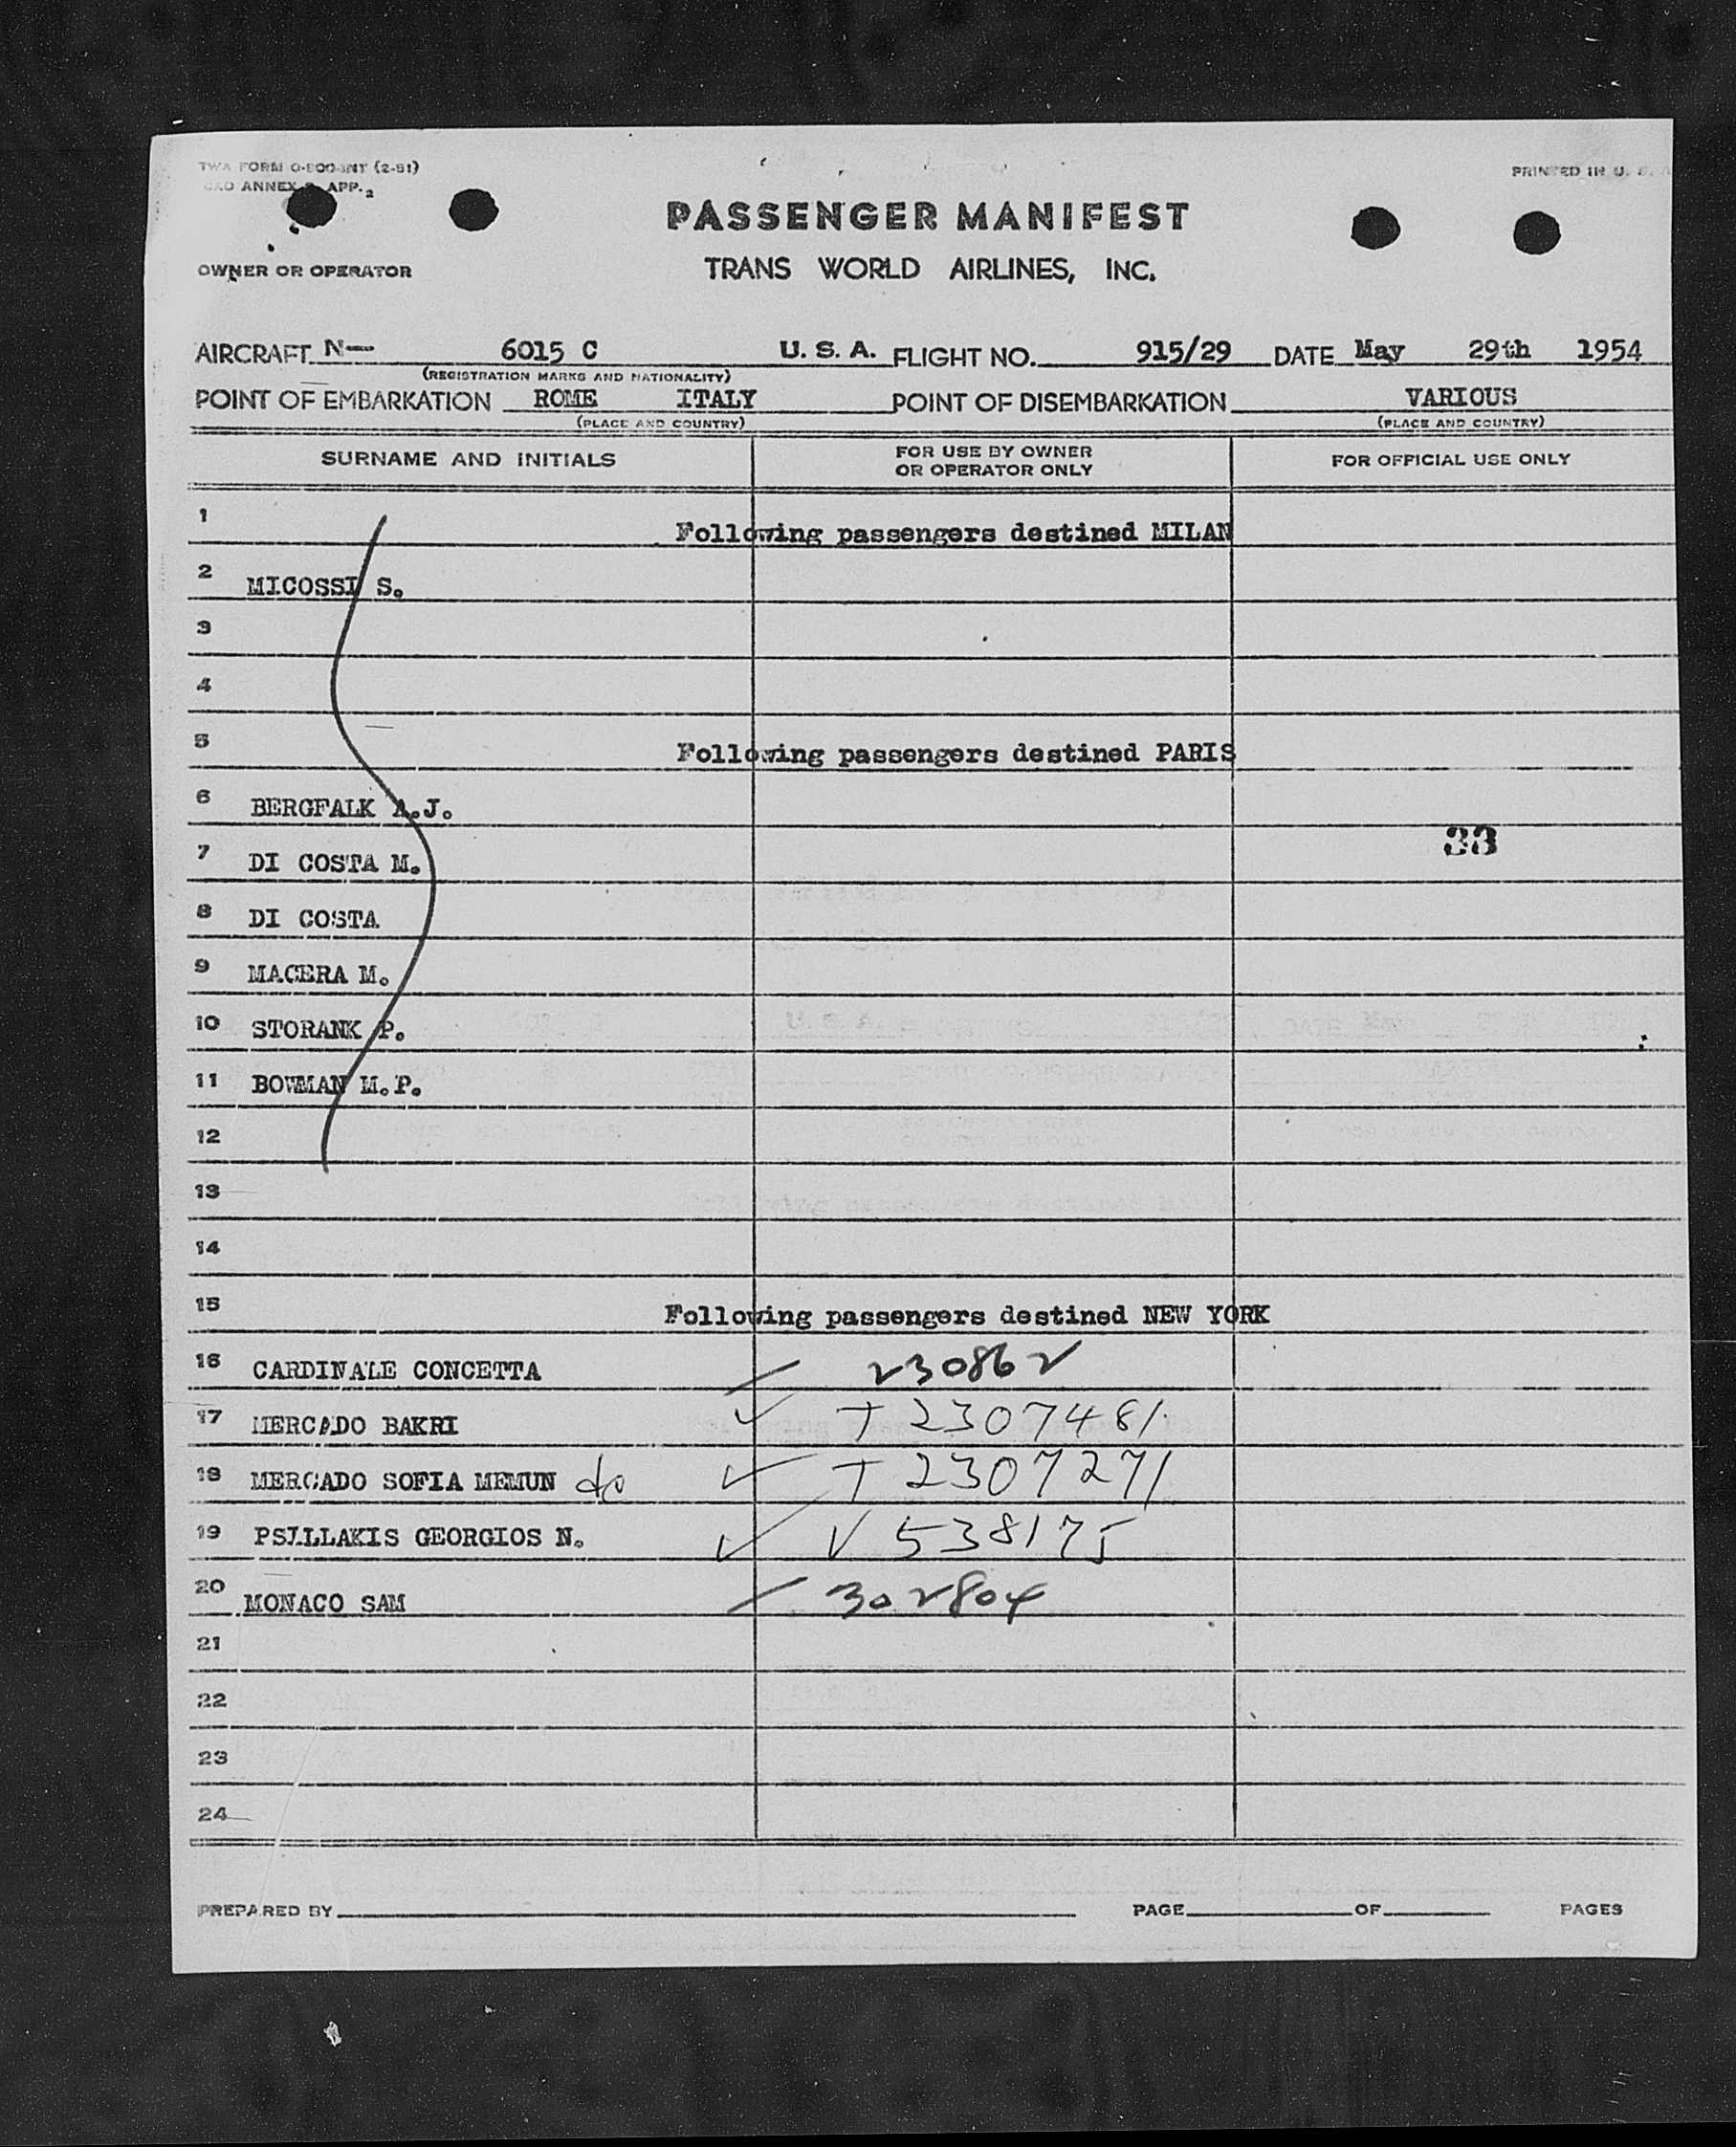 TWA FORM O-800-INT (2-51)
ANNEX APP. 2
PRINTED IN U. S.
PASSENGER MANIFEST
OWNER OR OPERATOR
TRANS WORLD AIRLINES, INC.
AIRCRAFT N— 6015 C U. S. A. FLIGHT NO. 915/29 DATE May 29th 1954
(REGISTRATION MARKS AND NATIONALITY)
POINT OF EMBARKATION ROME ITALY POINT OF DISEMBARKATION VARIOUS
(PLACE AND COUNTRY) (PLACE AND COUNTRY)
SURNAME AND INITIALS FOR USE BY OWNER OR OPERATOR ONLY FOR OFFICIAL USE ONLY
1 Following passengers destined MILAN
2 MICOSSI S.
3
4
5 Following passengers destined PARIS
6 BERGFALK A.J.
33
7 DI COSTA M.
8 DI COSTA
9 MACERA M.
10 STORANK P.
11 BOWMAN M.P.
12
13
14
15 Following passengers destined NEW YORK
16 CARDINALE CONCETTA ✓ 230862
17 MERCADO BAKRI ✓ T 2307481
18 MERCADO SOFIA MEMUN do ✓ T 2307271
19 PSILLAKIS GEORGIOS N. ✓ V 538175
20 MONACO SAM ✓ 302804
21
22
23
24
PREPARED BY PAGE OF PAGES